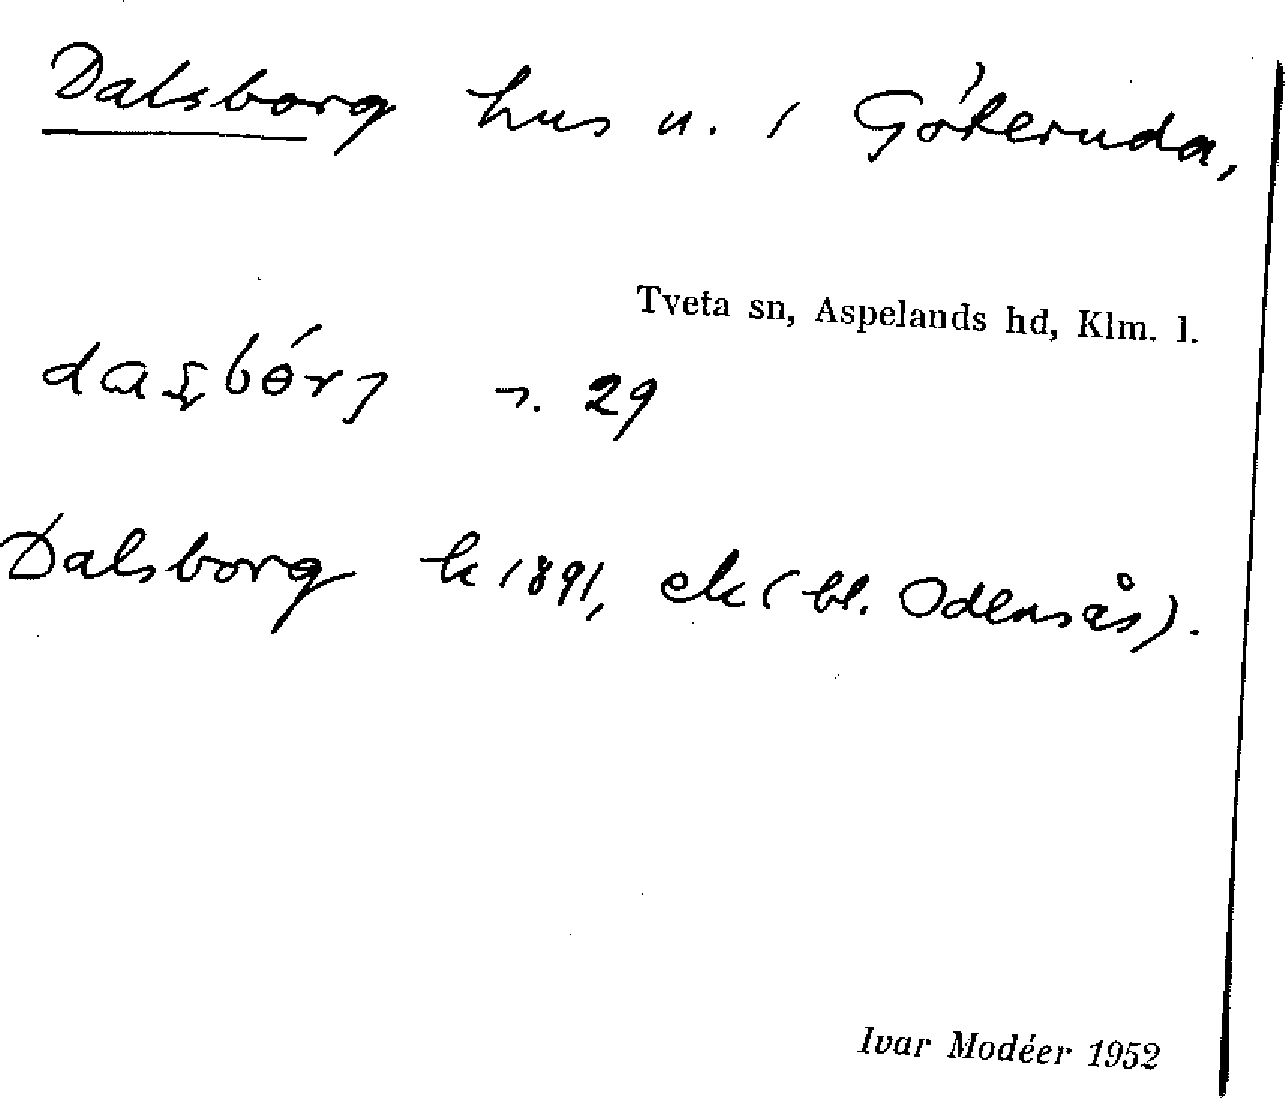 Dalsborg hus u. i Göteruda,
Tveta sn, Aspelands hd, Klm. l.
29
Dalsborg k 1891, ek (bl. Odensås).
Ivar Modéer 1952